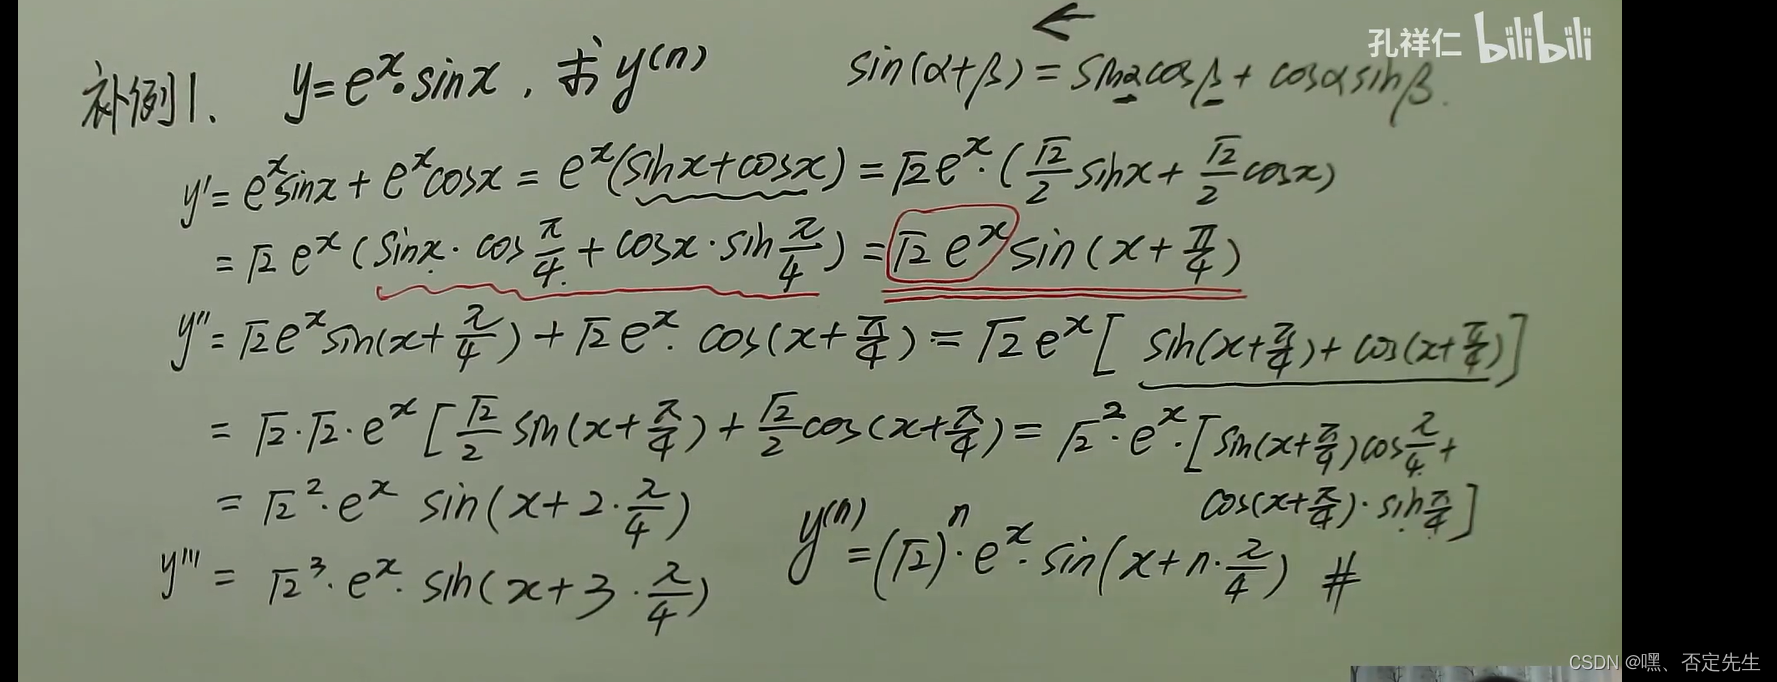 孔祥仁 bilibili
补例1. y=e^x·sinx , 求 y^(n) sin(α+β) = sinαcosβ + cosαsinβ.
y' = e^x sinx + e^x cosx = e^x(sinx+cosx) = √2e^x·(√2/2 sinx + √2/2 cosx)
= √2 e^x (sinx·cosπ/4 + cosx·sinπ/4) = √2 e^x sin(x+π/4)
y'' = √2e^x sin(x+π/4) + √2 e^x· cos(x+π/4) = √2 e^x [sin(x+π/4) + cos(x+π/4)]
= √2·√2·e^x [√2/2 sin(x+π/4) + √2/2 cos(x+π/4) = √2^2·e^x·[sin(x+π/4)cosπ/4 +
cos(x+π/4)·sinπ/4]
= √2^2·e^x sin(x+2·π/4)
y''' = √2^3·e^x· sin(x+3·π/4)
y^(n) = (√2)^n·e^x·sin(x+n·π/4) #
CSDN @嘿、否定先生